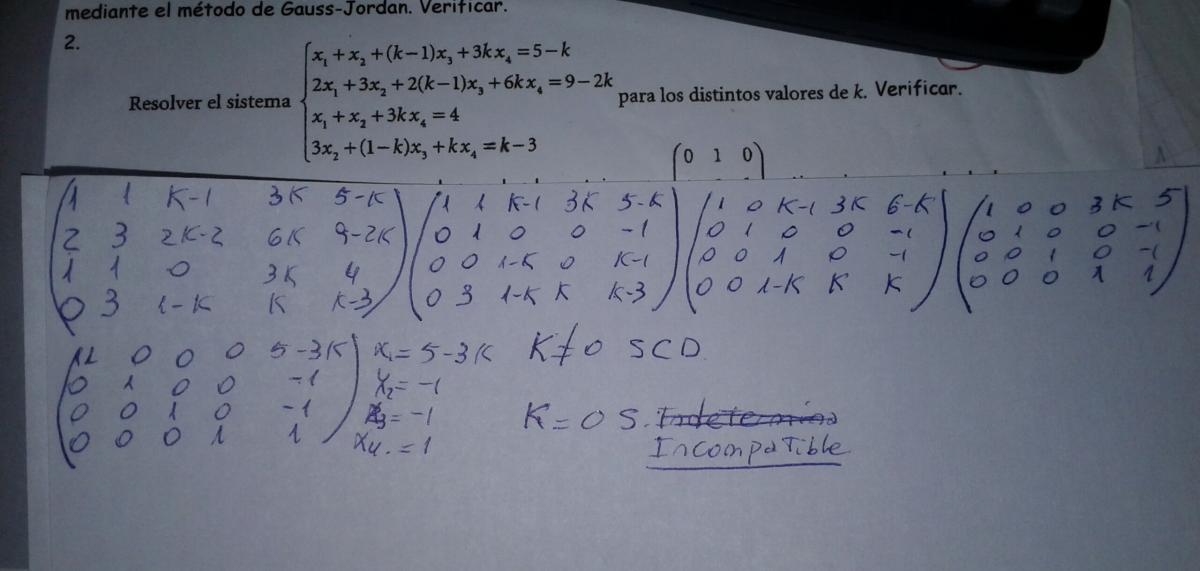 mediante el método de Gauss-Jordan. Verificar.
2.
Resolver el sistema
x₁ + x₂ + (k−1)x₃ + 3kx₄ = 5 − k
2x₁ + 3x₂ + 2(k−1)x₃ + 6kx₄ = 9 − 2k
x₁ + x₂ + 3kx₄ = 4
3x₂ + (1−k)x₃ + kx₄ = k − 3
para los distintos valores de k. Verificar.
0 1 0
1 1 K-1 3K 5-K
2 3 2K-2 6K 9-2K
1 1 0 3K 4
0 3 1-K K K-3
1 1 K-1 3K 5-K
0 1 0 0 -1
0 0 1-K 0 K-1
0 3 1-K K K-3
1 0 K-1 3K 6-K
0 1 0 0 -1
0 0 1 0 -1
0 0 1-K K K
1 0 0 3K 5
0 1 0 0 -1
0 0 1 0 -1
0 0 0 1 1
1 0 0 0 5-3K
0 1 0 0 -1
0 0 1 0 -1
0 0 0 1 1
x₁ = 5-3K
x₂ = -1
x₃ = -1
x₄. = 1
K≠0 SCD
K=0 S. Indetermina
Incompatible